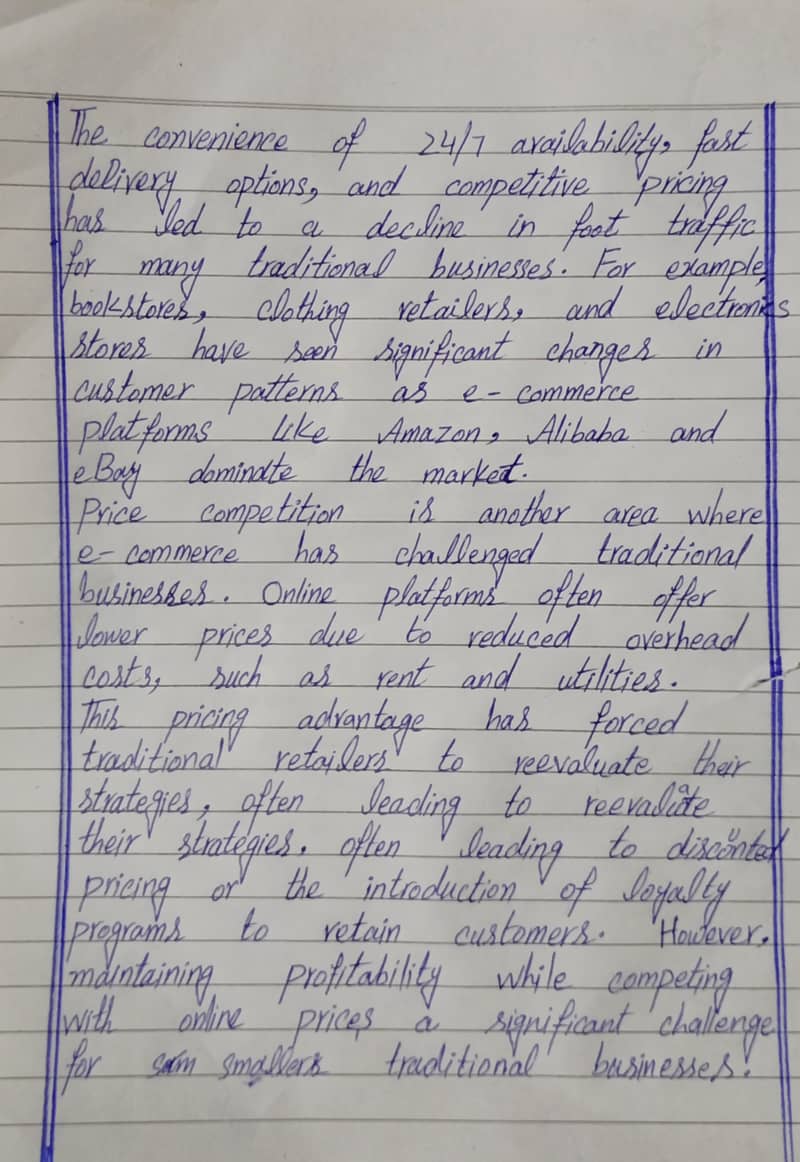 The convenience of 24/7 availability, fast
delivery options, and competitive pricing
has led to a decline in foot traffic
for many traditional businesses. For example,
bookstores, clothing retailers, and electronics
stores have seen significant changes in
customer patterns as e-commerce
platforms like Amazon, Alibaba and
eBay dominate the market.
Price competition is another area where
e-commerce has challenged traditional
businesses. Online platforms often offer
lower prices due to reduced overhead
costs, such as rent and utilities.
This pricing advantage has forced
traditional retailers to reevaluate their
strategies, often leading to reevaluate
their strategies. often leading to discounted
pricing or the introduction of loyalty
programs to retain customers. However,
maintaining profitability while competing
with online prices a significant challenge
for smallers traditional businesses.